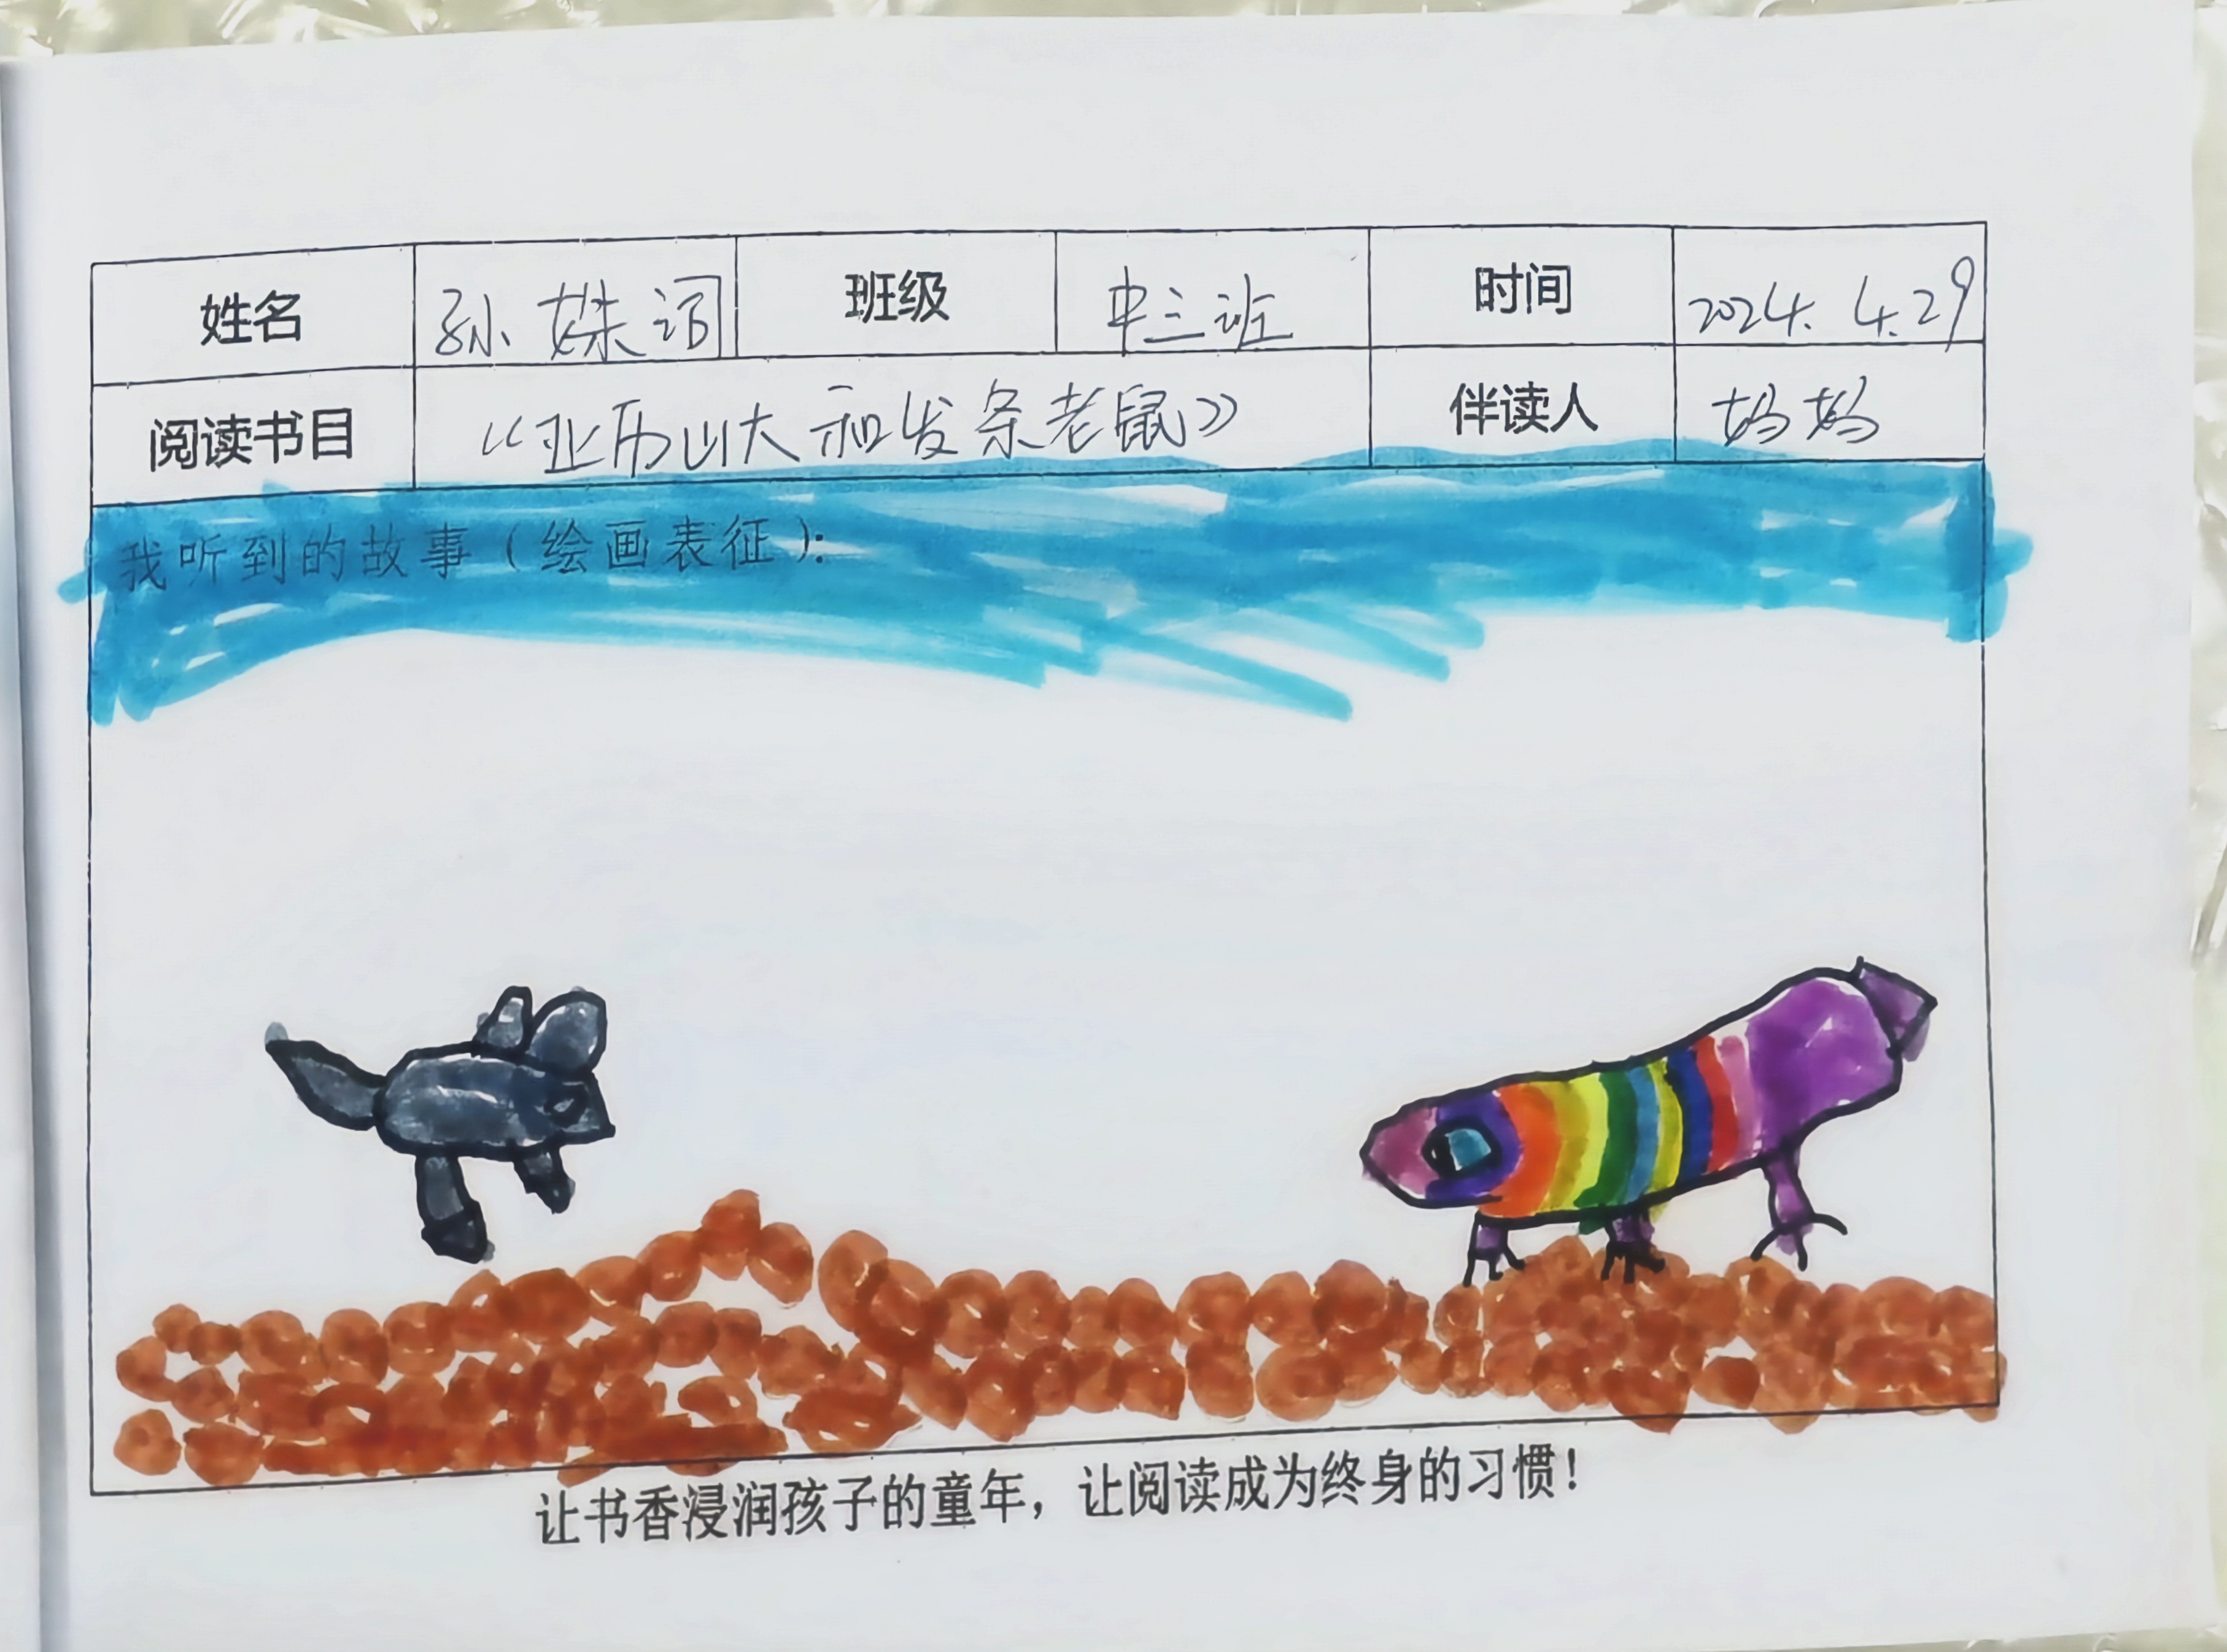 姓名 孙姝词 班级 中三班 时间 2024.4.29
阅读书目 《亚历山大和发条老鼠》 伴读人 妈妈
我听到的故事（绘画表征）：
让书香浸润孩子的童年，让阅读成为终身的习惯！